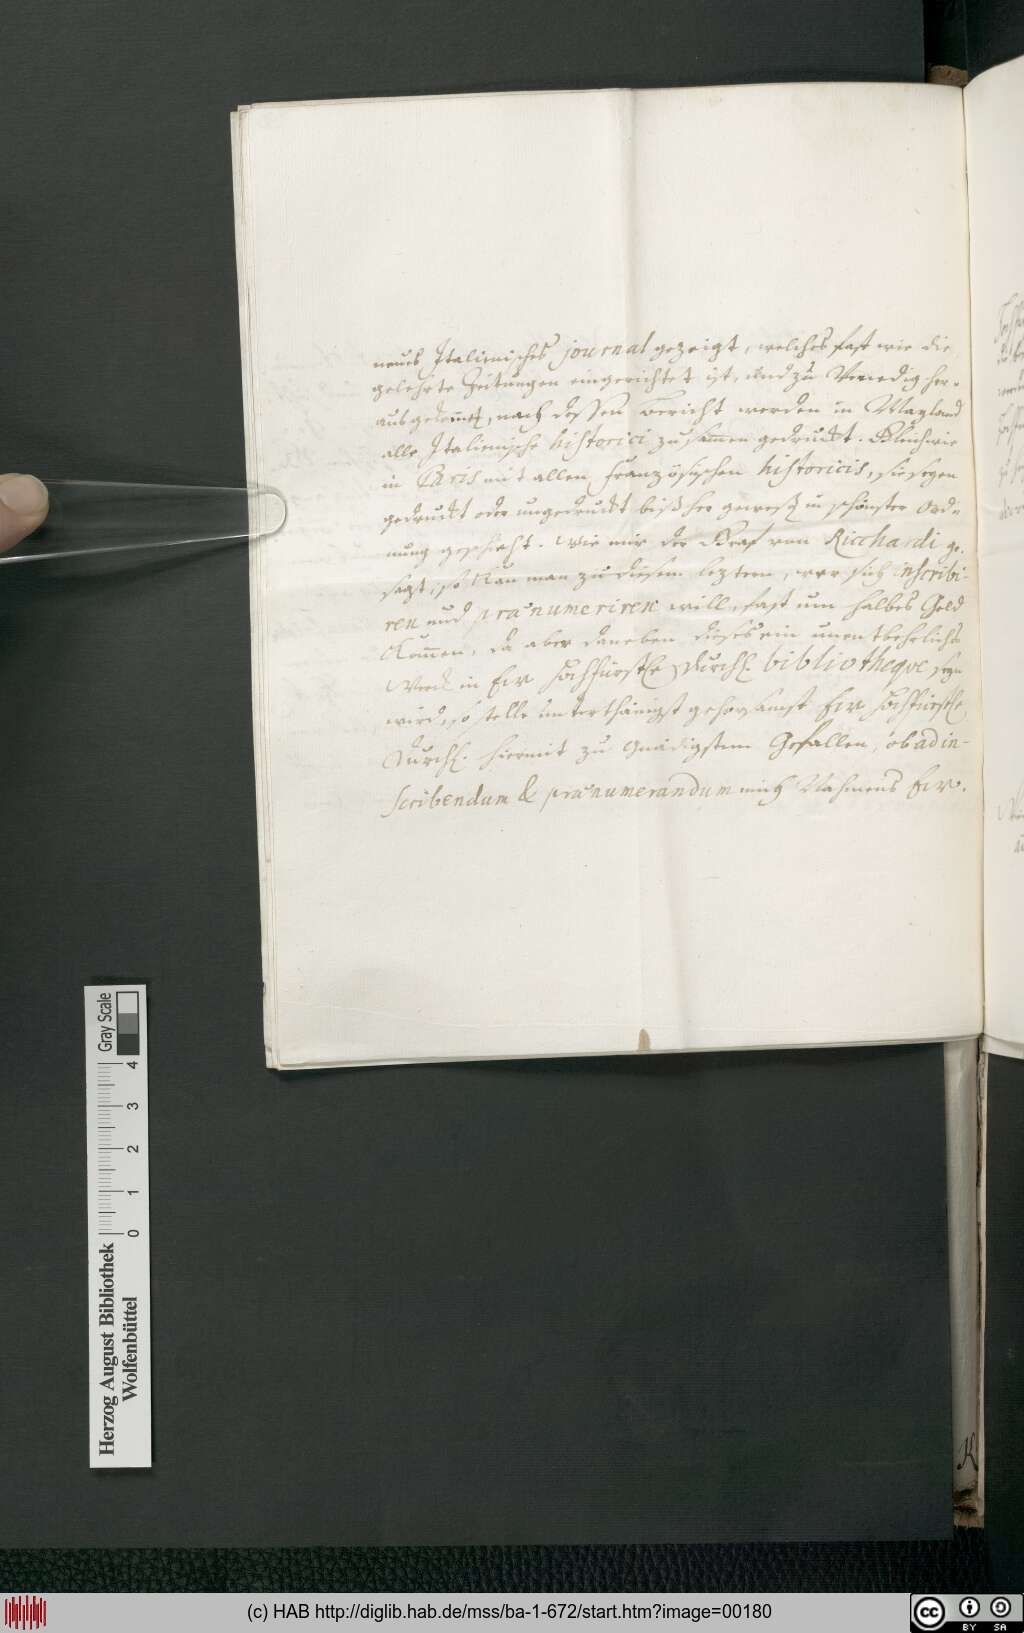 neues Italienisches journal gezeigt, welches fast wie die
gelehrte Zeitungen eingerichtet ist, und zu Venedig her-
ausgekommen, nach dessen Bericht werden in Mayland
alle Italienische historici zusammen gedruckt. Gleichwie
in Paris mit allen französischen historicis, sie seyen
gedruckt oder ungedruckt bißher gewest in schönster Ord-
nung geschieht. Wie mir der Graf von Ricchardi ge-
sagt, so kan man zu diesem leztern, wer sich inscribi-
ren und prænumeriren will, fast um halbes Geld
kommen, da aber daneben dieses ein unentbehrlichs
Werck in Ew Hochfürstle Durchl. bibliotheqve seyn
wird, so stelle unterthänigst gehorsamst Ew Hochfürstle
Durchl. hiermit zu Gnädigstem Gefallen, ob ad in-
scribendum & prænumerandum mich Nahmens Ew.
Gray Scale
0 1 2 3 4
Herzog August Bibliothek
Wolfenbüttel
(c) HAB http://diglib.hab.de/mss/ba-1-672/start.htm?image=00180
cc BY SA